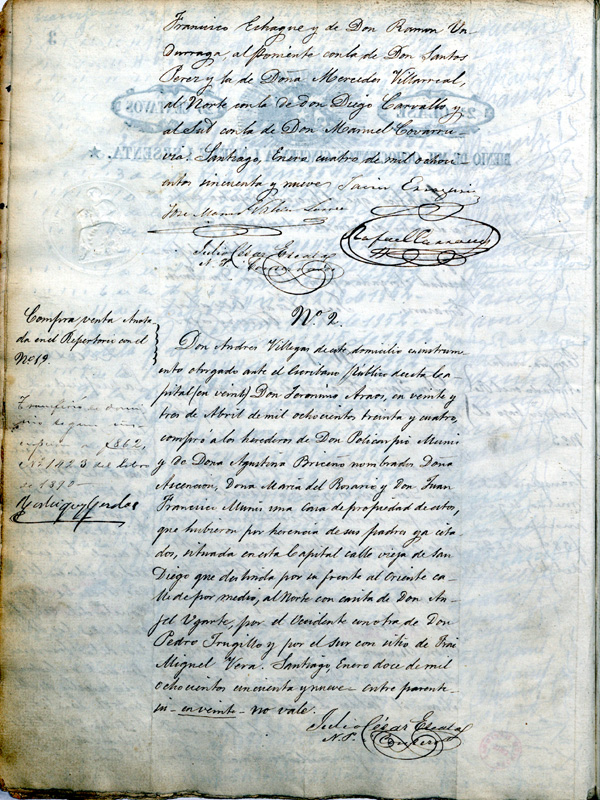 Francisco Echague y de Don Ramon Un
durraga, al poniente con la de Don Santos
Perez y la de Doña Mercedes Villarreal,
al Norte con la de don Diego Carvallo y
al Sud con la de Don Manuel Covarru-
vias. Santiago, Enero cuatro de mil ochoci
entos sincuenta y nueve
Julio César Escala
N. P.
No. 2.
Compra venta Anota
da en el Repertorio con el
No 19.
Don Andres Villegas de este domicilio en instrum
ento otorgado ante el Escribano público de esta Ca-
pital (en veint) Don Jeronimo Araos, en veinte y
tres de Abril de mil ochocientos treinta y cuatro,
compró a los herederos de Don Policarpio Muni
y de Dona Agustina Briceño nombrados Dona
Ascencion, Dona Maria del Rosario y don Juan
Francisco Munis una casa de propiedad de estos,
que hubieron por herencia de sus padres ya cita
dos, situada en esta Capital calle vieja de San
Diego que deslinda por su frente al Oriente ca-
lle de por medio, al Norte con casita de Don An-
jel Ugarte, por el Occidente con otra de Don
Pedro Trugillo y por el sur con sitio de Frai
Miguel Vera. Santiago, Enero doce de mil
ochocientos cincuenta y nueve - entre parente-
sis - en veinte - no vale.
1862,
No 1423 del libro
de 1890
Julio César Escala
N. P.